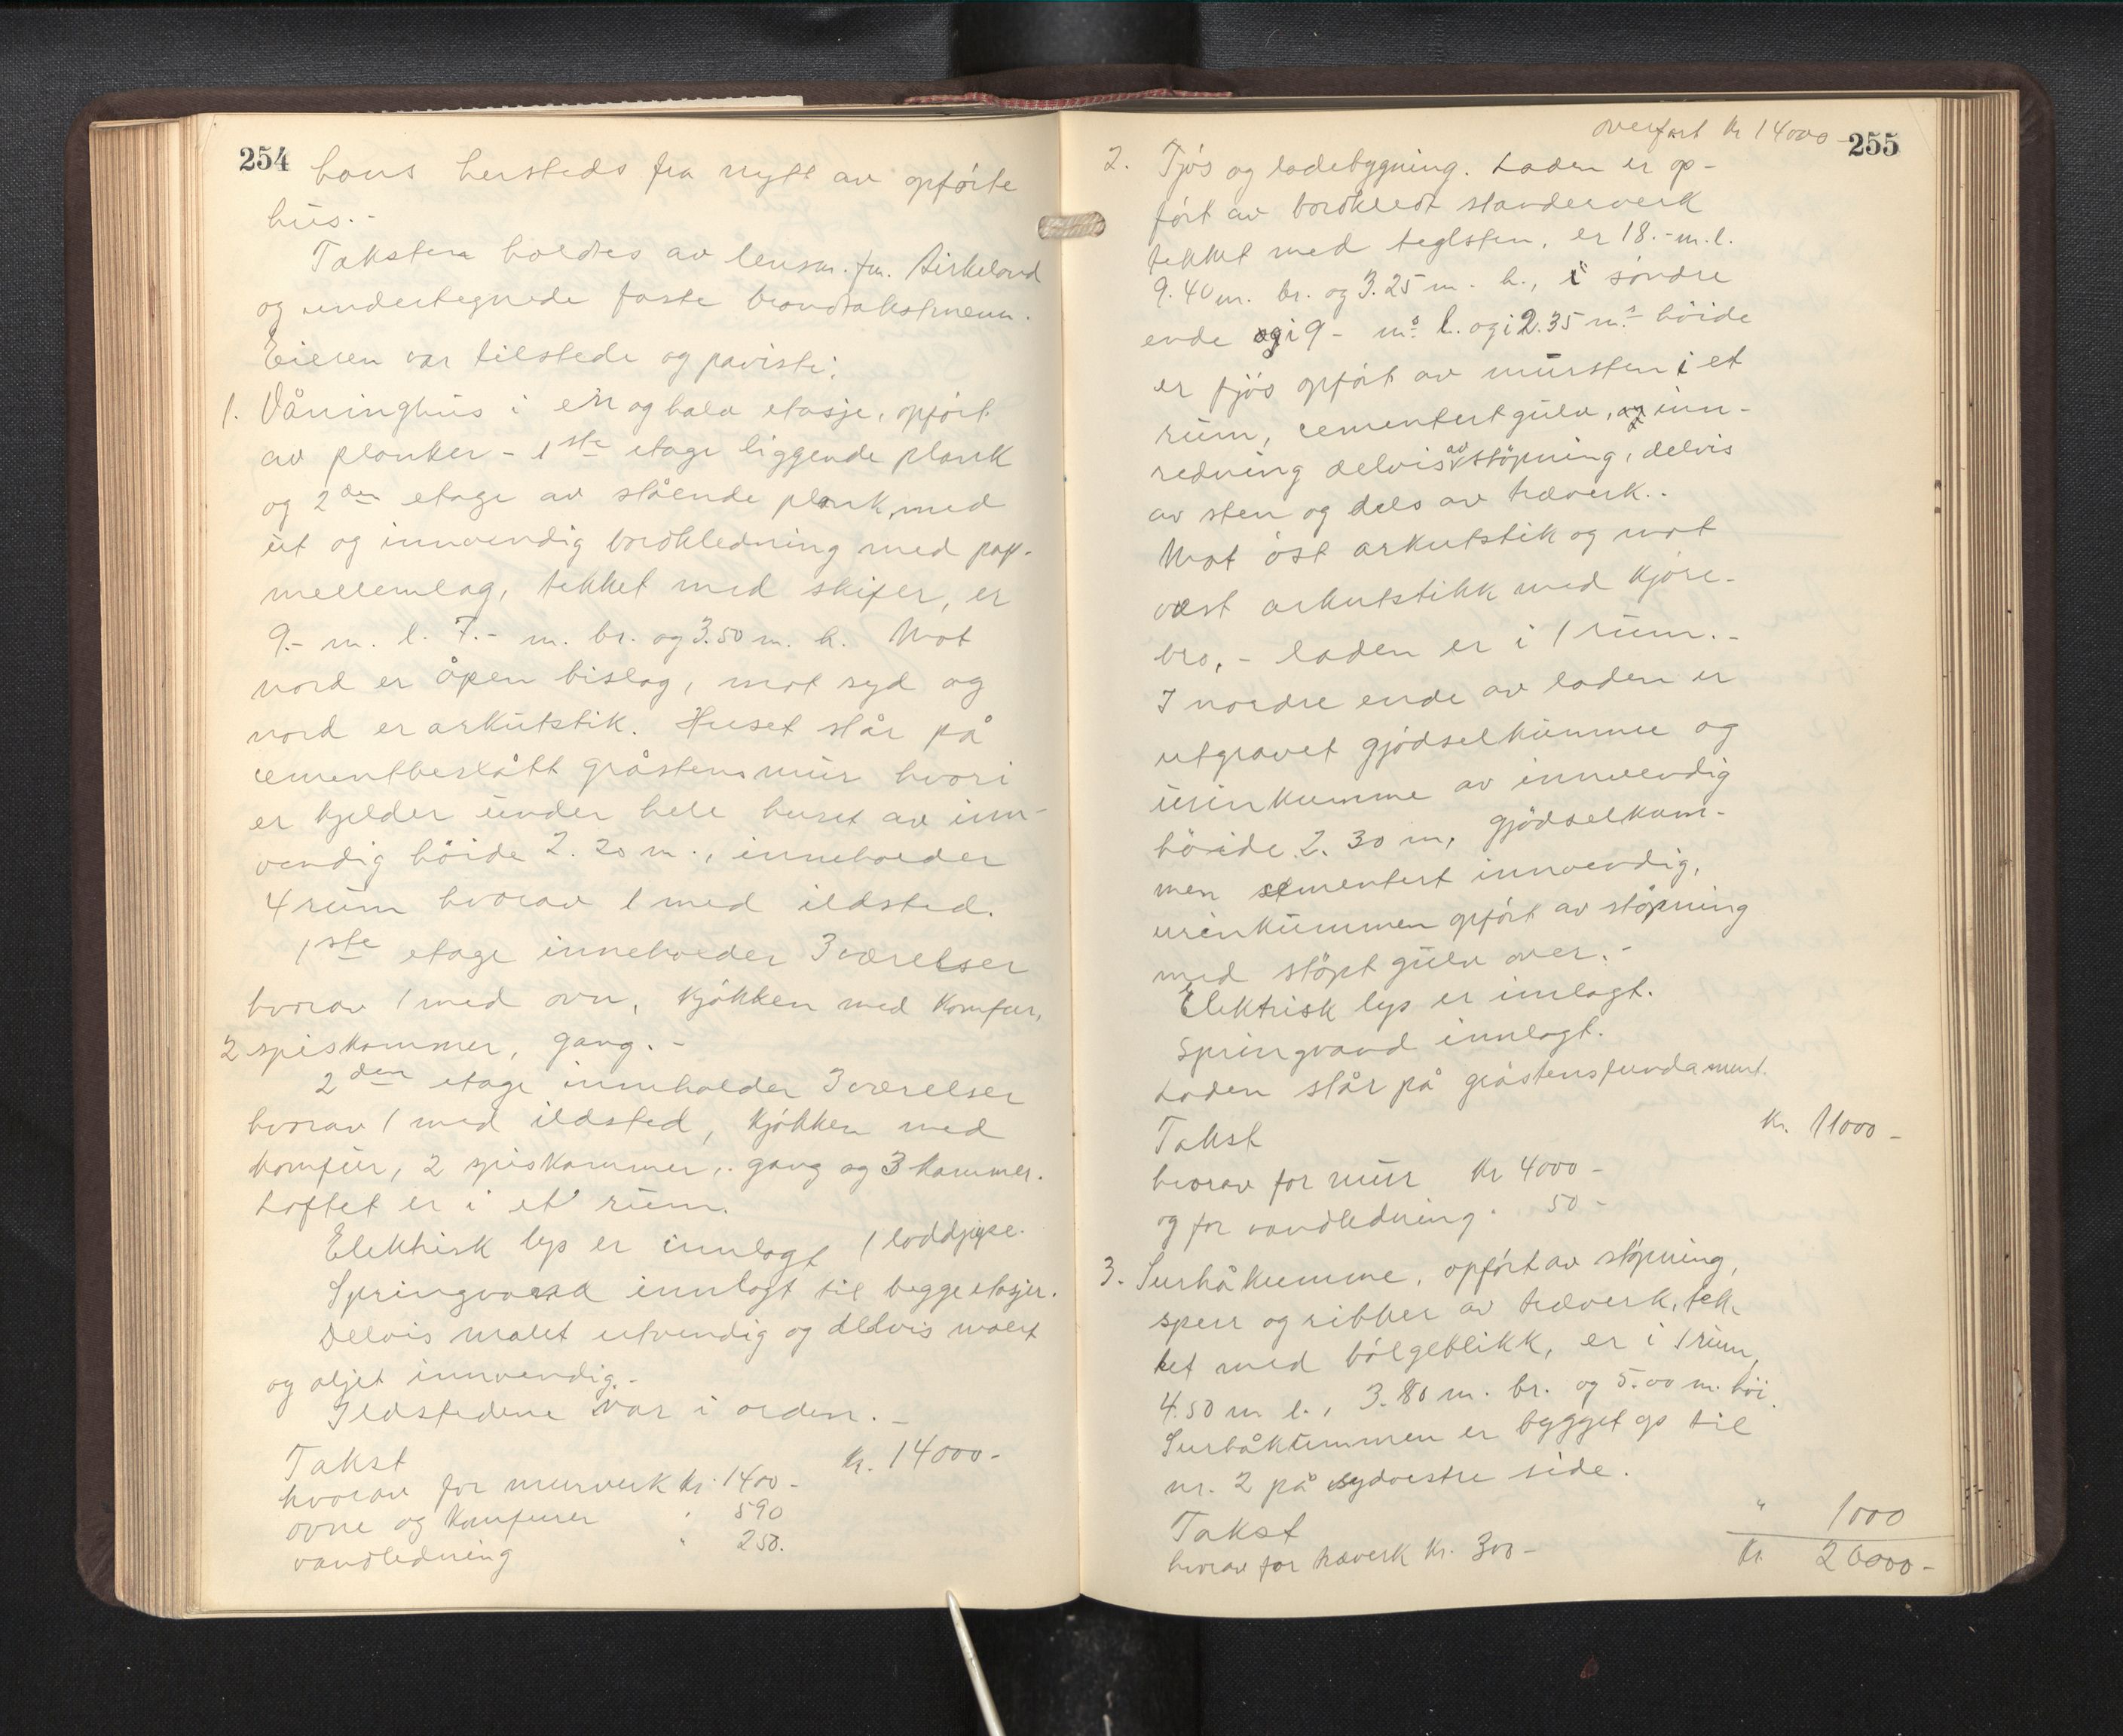 254
hans hersteds fra nytt av opførte
hus.-
Taksten holdes av lensm. fm. Birkeland
og undertegnede faste brandtakstmenn.
Eieren var tilstede og paviste:
1. Våninghus i en og halv etasje, opført
av planker - 1ste etage liggende plank
og 2den etage av stående plank, med
ut og innvendig bordkledning med papp-
mellemlag, tekket med skifer, er
9.- m. l. 7.- m. br. og 3.50 m. h. Mot
nord er åpen bislag, mot syd og
nord er arkutstik. Huset står på
cementbeslått gråstensmur hvori
er kjelder under hele huset av inn-
vendig höide 2.20 m., inneholder
4 rum hvorav 1 med ildsted.
1ste etage inneholder 3 værelser
hvorav 1 med ovn, kjökken med komfur,
2 spiskammer, gang. -
2den etage inneholder 3 værelser
hvorav 1 med ildsted, kjökken med
komfur, 2 spiskammer, gang og 3 kammer.
Loftet er i et rum.
Elektrisk lys er innlagt 1 loddpipe.
Springvand innlagt til begge etasjer.
Delvis malet utvendig og delvis malt
og oljet innvendig.-
Ildstedene var i orden. -
Takst kr. 14000-
hvorav for murverk kr. 1400-
ovne og komfurer " 590
vandledning " 250.
overført kr 14000-
255
2. Fjös og ladebygning. Laden er op-
fört av bordkledt standerverk
tekket med teglsten, er 18.- m. l.
9.40 m. br. og 3.25 m. h., i söndre
ende og i 9- ms l. og i 2.35 m.s höide
er fjös opfört av mursten i et
rum, cementert gulv, inn-
redning delvis av støpning, delvis
av sten og dels av træverk..
Mot öst arkutstik og mot
vest arkutstikk med kjöre-
bro. - laden er i 1 rum. -
I nordre ende av laden er
utgravet gjödselkumme og
urinkumme av innvendig
höide 2.30 m, gjödselkum-
men sementert innvendig,
urinkummen opfört av stöpning
med stöpt gulv over. -
Elektrisk lys er innlagt.
Springvand innlagt.
Laden står på gråstensfundament.
Takst kr. 11000-
hvorav for mur kr 4000-
og for vandledning. 50-
3. Surhåkumme, opfört av stöpning,
sperr og ribber av træverk, tek-
ket med bölgeblikk, er i 1 rum,
4.50 m l., 3.80 m. br. og 5.00 m. höi.
Surhåkummen er bygget op til
nr. 2 på sydvestre side.
Takst " 1000
hvorav for træverk kr. 300- Kr. 26000-